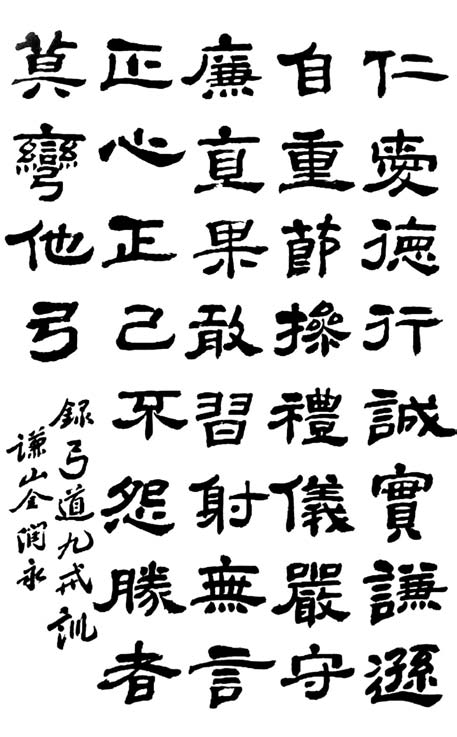 仁愛德行誠實謙遜
自重節操禮儀嚴守
廉直果敢習射無言
正心正己不怨勝者
莫彎他弓
錄弓道九戒訓
謙山全潤永